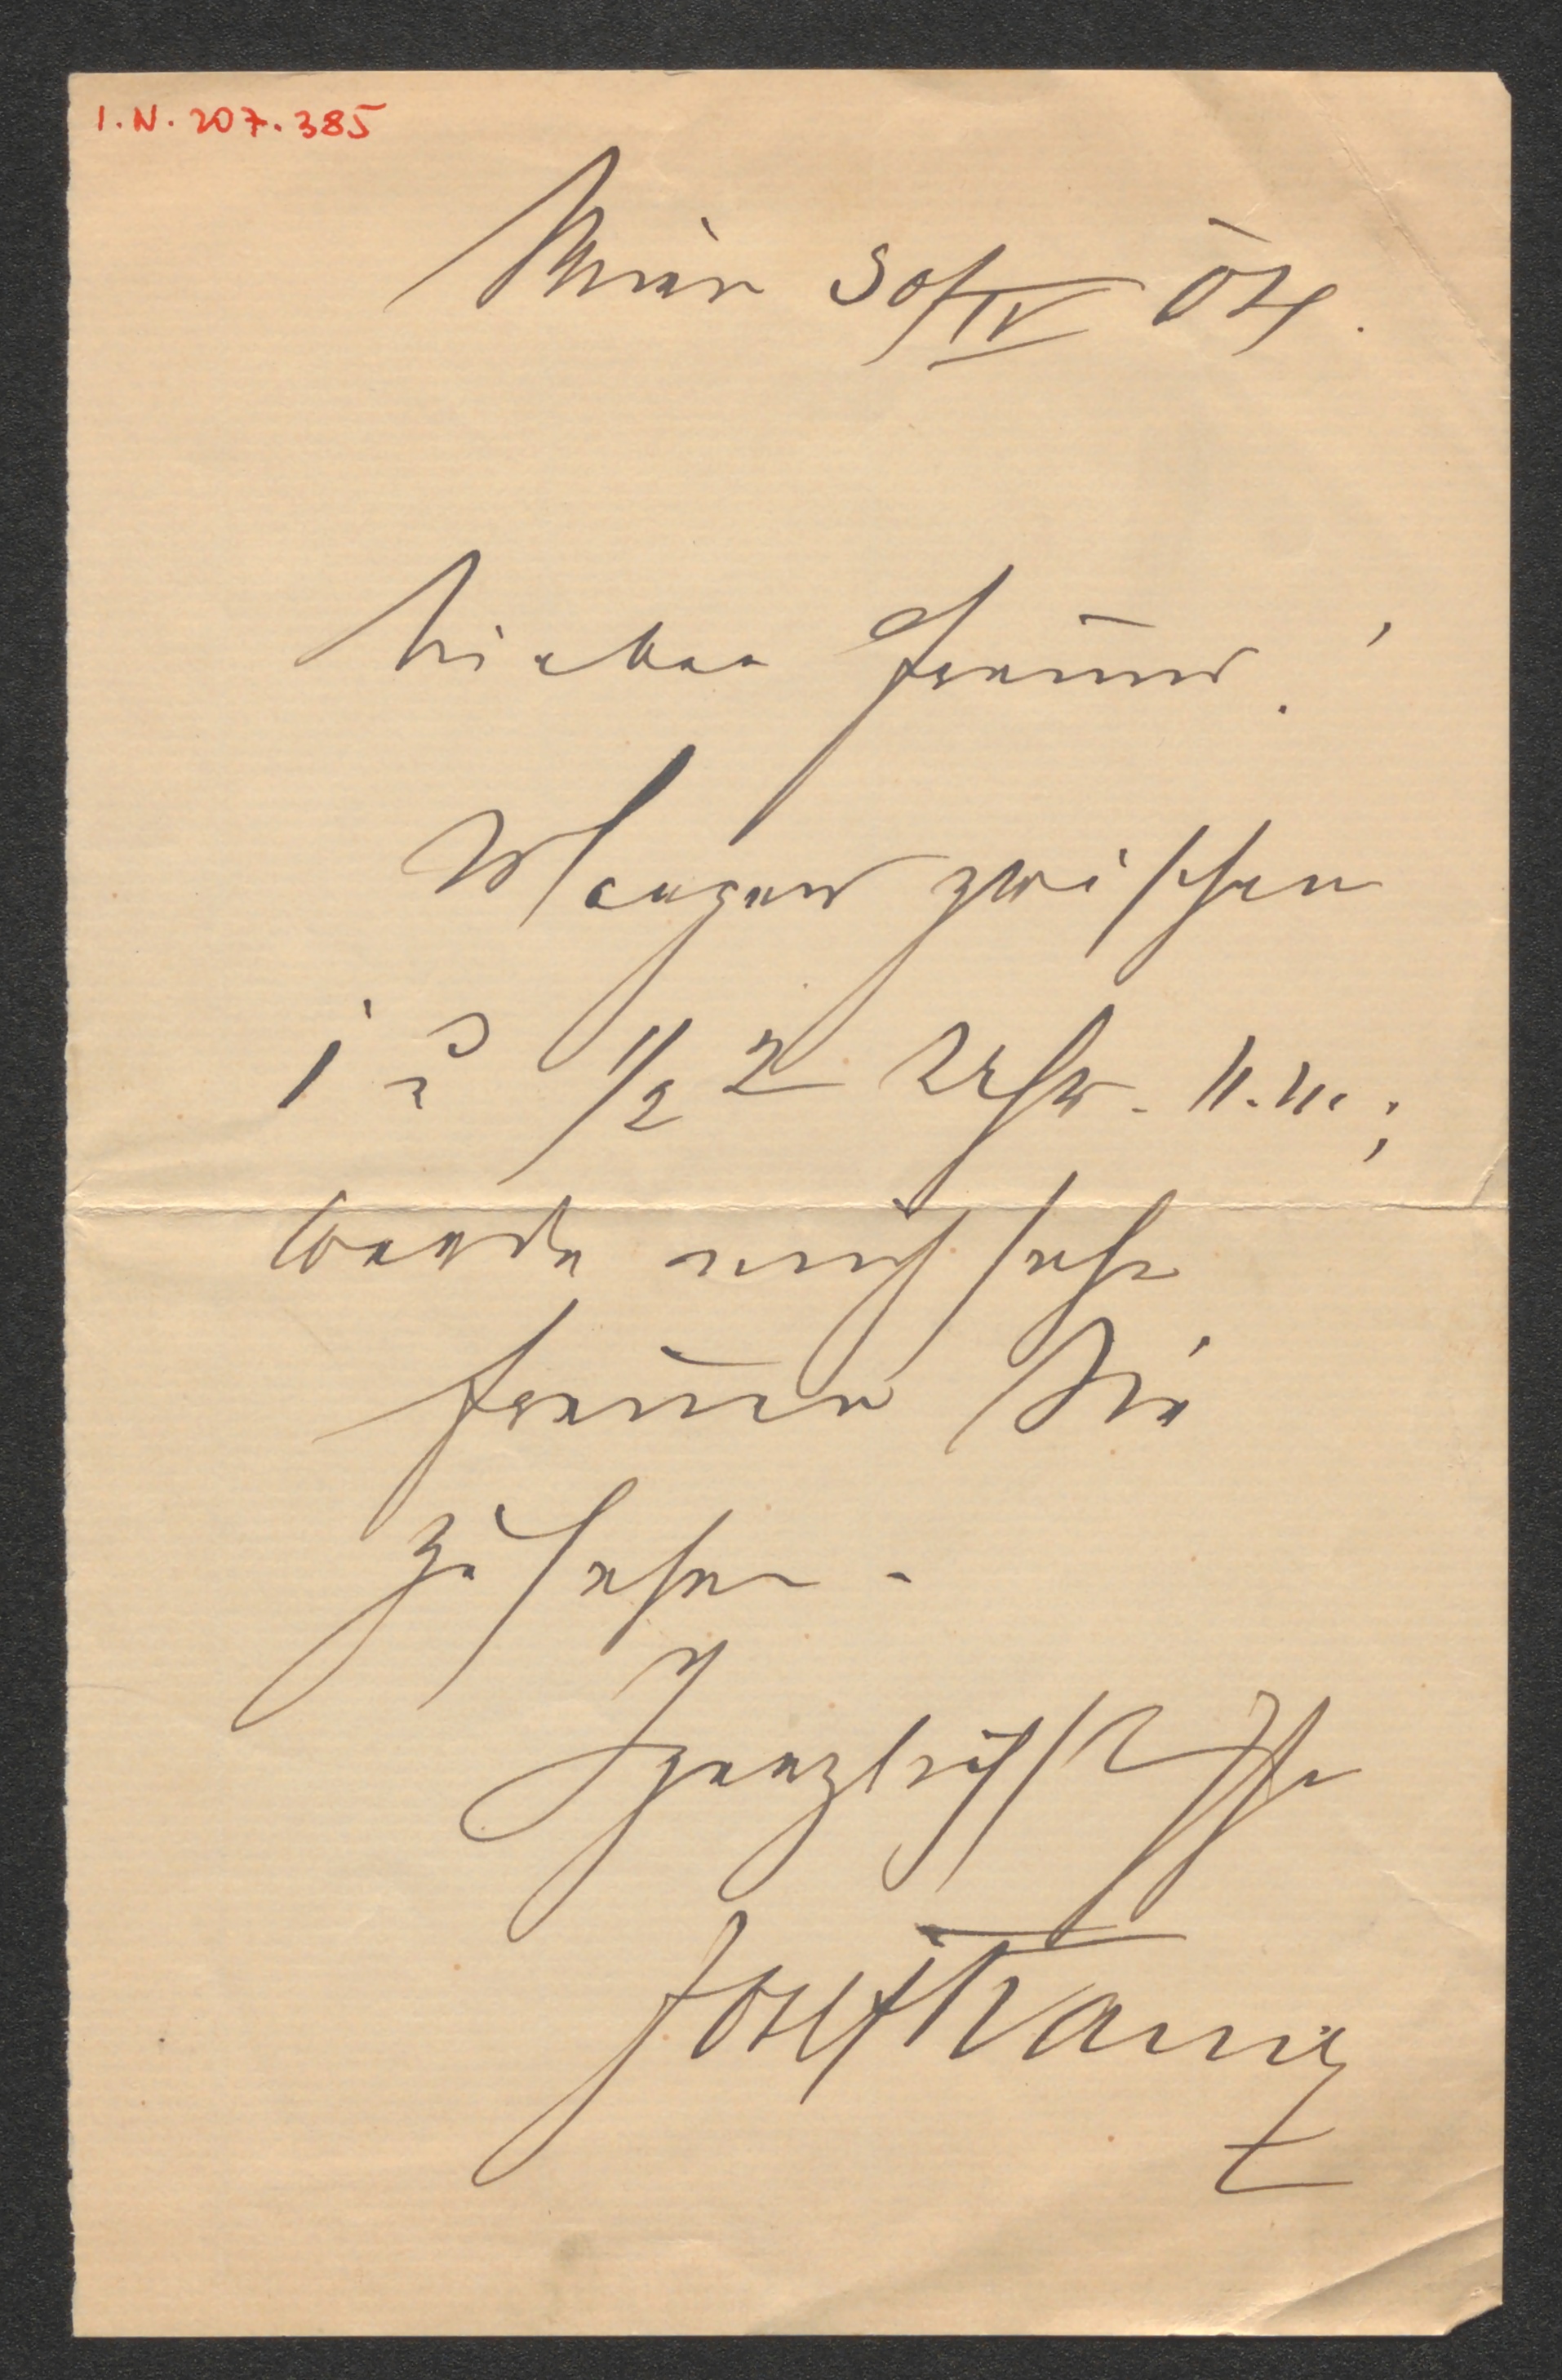 I.N. 207.385
Wien 30/IV 04.
Lieber Freund!
Morgen zwischen
1 & 1/2 2 Uhr. N.M.;
werde mich sehr
freuen Sie
zu sehen.
Herzlichst Ihr
Josef Kainz